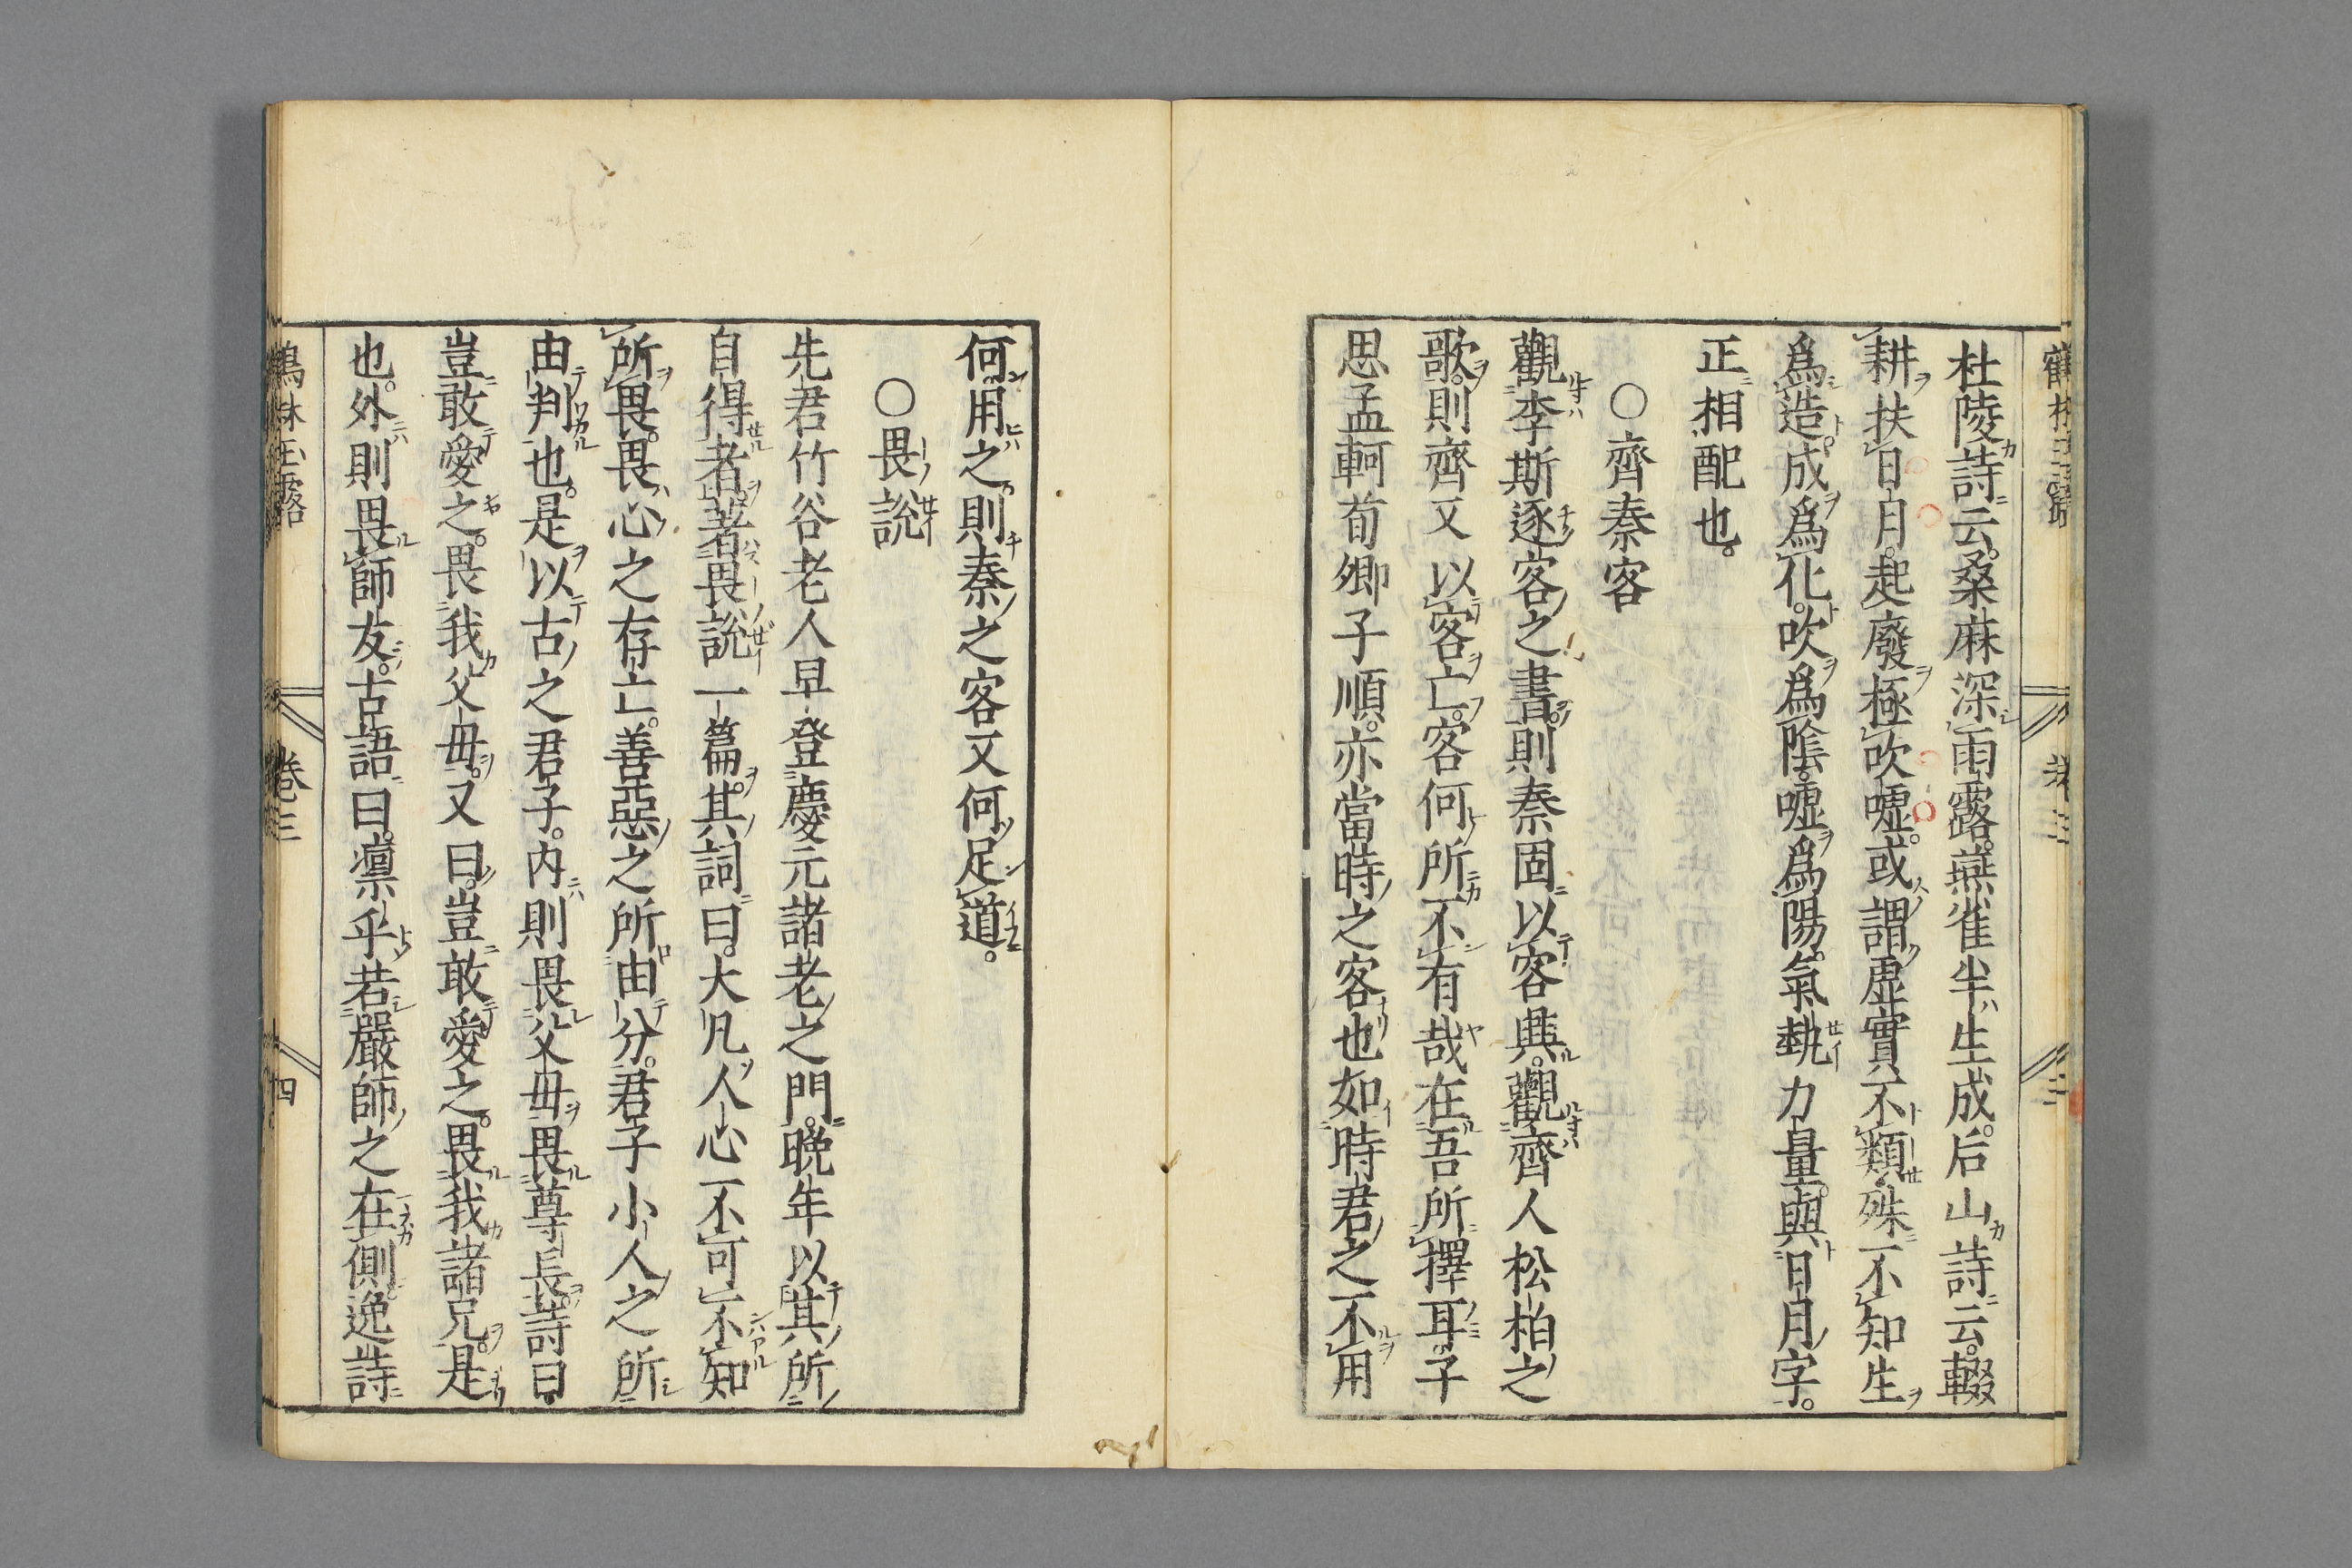 杜陵詩云。桑麻深雨露。燕雀半生成。后山詩云。輟
耕扶日月。起廢極吹噓。或謂虛實不類。殊不知生
爲造。成爲化。吹爲陰。噓爲陽。氣勢力量。與日月字。
正相配也。
○齊秦客
觀李斯逐客之書。則秦固以客興。觀齊人松柏之
歌。則齊又以客亡。客何所不有哉在吾所擇耳。子
思孟軻荀卿子順。亦當時之客也如時君之不用
何。用之則秦之客又何足道。
○畏說
先君竹谷老人早登慶元諸老之門。晚年以其所
自得者。著畏說一篇。其詞曰。大凡人心不可不知
所畏。畏心之存亡。善惡之所由分。君子小人之所
由判也。是以古之君子。內則畏父母畏尊長。詩曰。
豈敢愛之。畏我父母。又曰。豈敢愛之。畏我諸兄。是
也。外則畏師友。古語曰。凛乎若嚴師之在側。逸詩
卷三
四